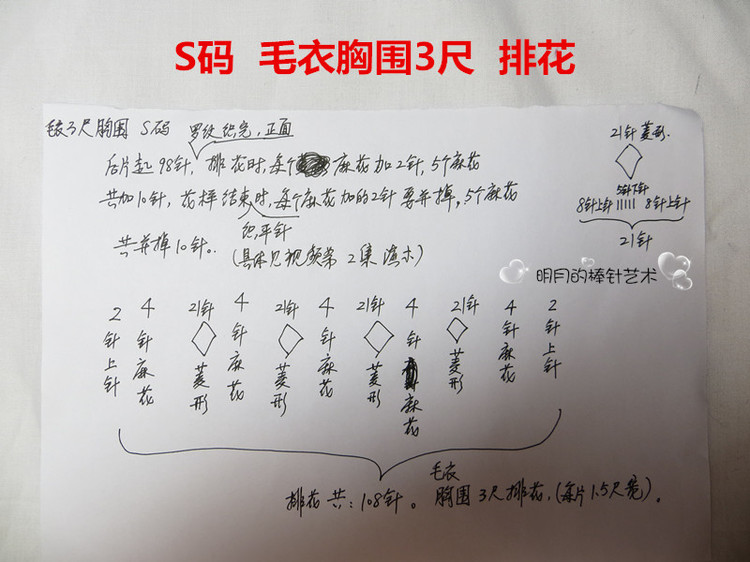 S码 毛衣胸围3尺 排花
毛衣3尺胸围 S码 罗纹织完,正面
后片起98针,排花时,每个麻花加2针,5个麻花
共加10针,花样结束时,每个麻花加的2针要并掉,5个麻花
织平针
共并掉10针。(具体见视频第2集演示)
21针菱形.
5针下针
8针上针 8针上针
21针
明月的棒针艺术
2针上针
4针麻花
21针菱形
4针麻花
21针菱形
4针麻花
21针菱形
4针麻花
21针菱形
4针麻花
2针上针
排花共:108针。毛衣胸围3尺排花,(每片1.5尺宽)。